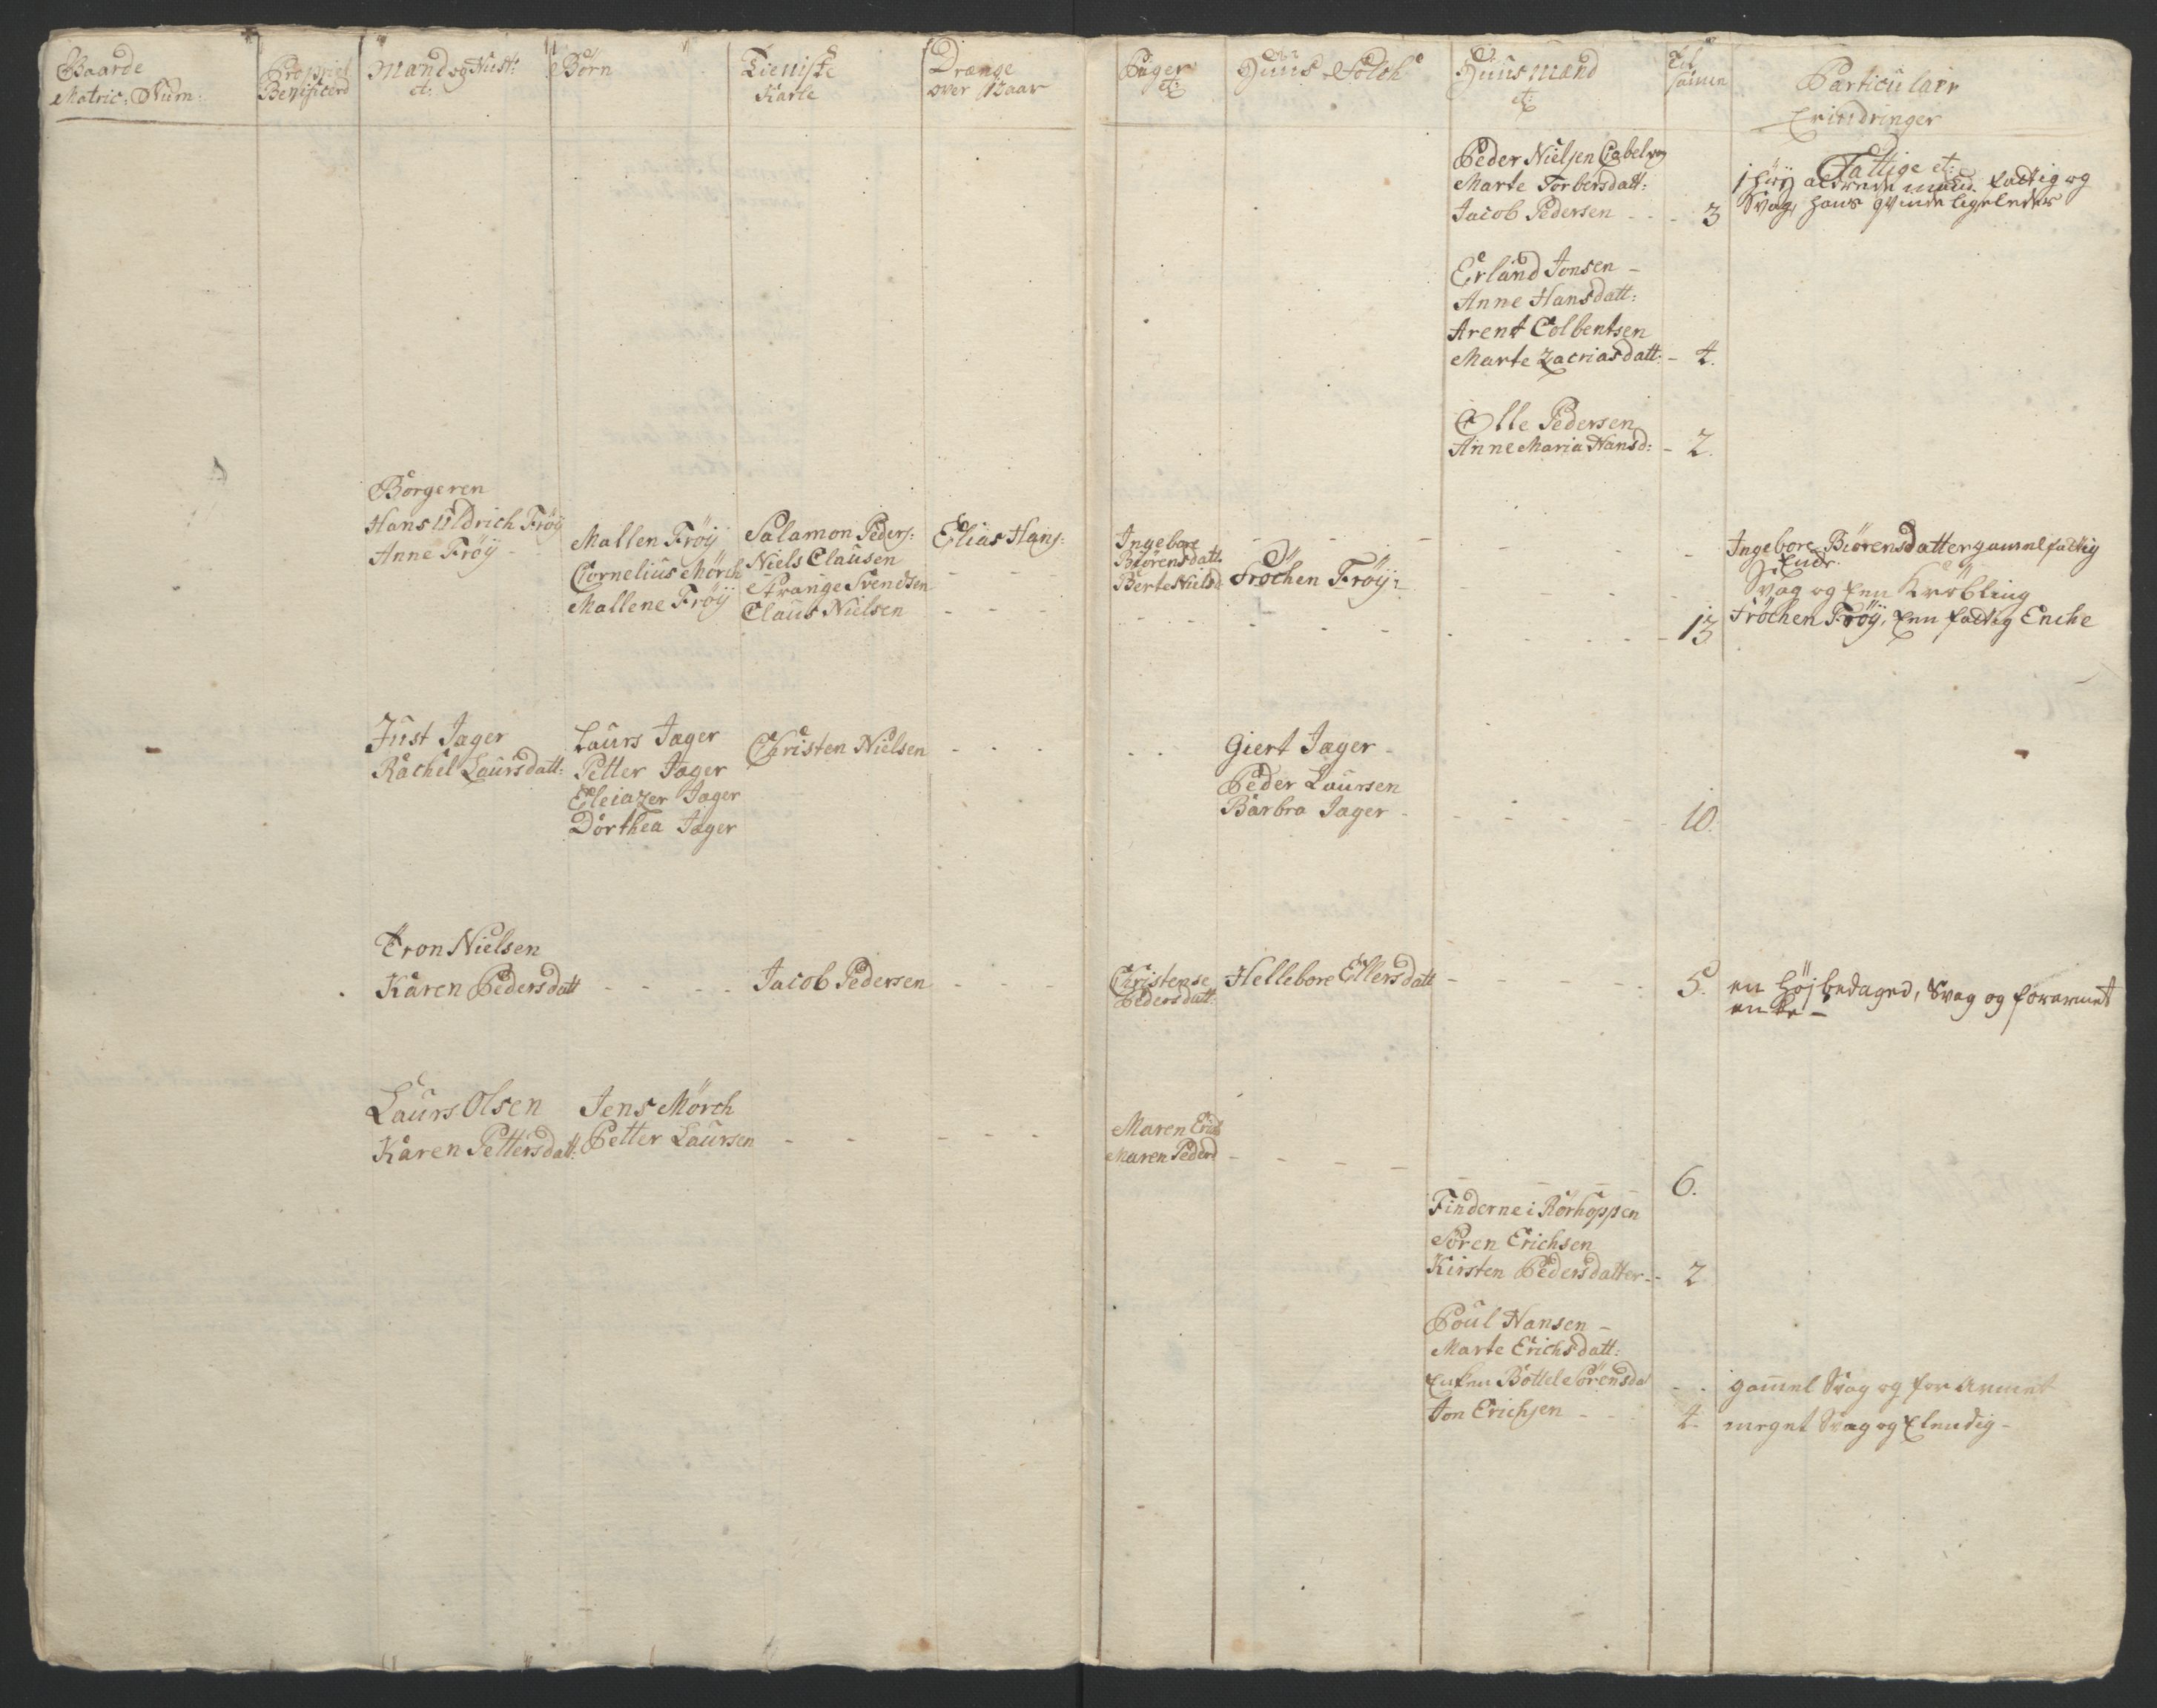 Gaarde
Matric: Num:
Propriet:
Benificerd
Mand og Hust:
et:
Börn
Tieniste
Karle
Drænge
over 12 aar
Piiger
et:
Huus-Folch
Huusmænd
et:
Til
samen
Particulair
Erindringer
Peder Nielsen Cabelvog
Marte Torbersdatt:
Jacob Pedersen - - 3
Fattige et:
1 Høÿ aldrende mand fattig og
Svag, hans qvinde ligeledes
Erland Jonsen -
Anne Hansdatt:
Arent Colbentsen
Marte Zacriasdatt: - 4.
Olle Pedersen
Anne Maria Hansd: - 2.
Borgeren
Hans Uldrich Fröÿ
Anne Fröÿ -
Mallen Fröÿ
Cornelius Mörch
Mallene Fröÿ
Salamon Peders:
Niels Clausen
Prange Svendsen
Claus Nielsen
Elias Hans:
Ingebore
Biörensdatt:
Berte Nielsd:
Fröchen Fröÿ:
13
Ingebore Biörensdatter gammel fattig
Svag og Een Kröbling
Fröchen Fröÿ, Een fattig Enche
Just Jager
Rachel Laursdatt:
Laurs Jager
Petter Jager
Eleiazer Jager
Dorthea Jager
Christen Nielsen
Giert Jager -
Peder Laursen
Barbra Jager -
10.
Tron Nielsen
Karen Pedersdatt
Jacob Pedersen
Christense
Pedersdatt:
Hellebore Ellersdatt
5.
en Høj bedaged, Svag og forarmet
enke -
Laurs Olsen
Karen Pettersdatt:
Jens Mörch
Petter Laursen
Maren Erichs
Maren Pedersd
6.
Finderne i Rörhoppen
Sören Erichsen
Kirsten Pedersdatter - - 2
Poul Hansen -
Marte Erichsdatt:
Enken Bottele Sörensda - - gammel Svag og for Armet
Jon Erichsen - - 4 meget Svag og Elendig -